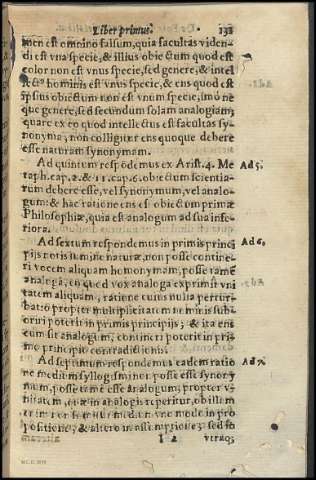 Liber primus. 131
men est omnino falsum, quia facultas viden-
di est vna specie, & illius obiectum quod est
color non est vnus specie, sed genere, & intel
lectꝰ hominis est vnus specie, & ens quod est
ipsius obiectum non est vnum specie, imò ne
que genere, sed secundum solam analogiam;
quare ex eo quod intellectus est facultas sy-
nonyma, non colligitur ens quoque debere
esse naturam synonymam.
Ad quintum respõdemus ex Arist. 4. Me Ad 5.
taph. cap. 2. & 11. cap. 6. obiectum scientia-
rum debere esse, vel synonymum, vel analo-
gum: & hac ratione ens est obiectum primæ
Philosophiæ, quia est analogum ad sua infe-
riora.
Ad sextum respondemus in primis princi Ad 6.
pijs notis lumine naturæ, non posse contine-
ri vocem aliquam homonymam, posse tamẽ
analoga, eo quod vox analoga exprimit vni
tatem aliquam, ratione cuius nulla pertur-
batio propter multiplicitatem nominis sub-
oriri poterit in primis principijs; & ita ens
cum sit analogum, contineri poterit in pri-
mo principio contradictionis.
Ad septimum respondemus eadem ratio Ad 7.
ne medium syllogismi, non posse esse synony
mum, posse tamẽ esse analogum, propter v-
nitatem, quæ in analogis reperitur,
positione, & altero in assumptione; sed
1 2 vtraq;